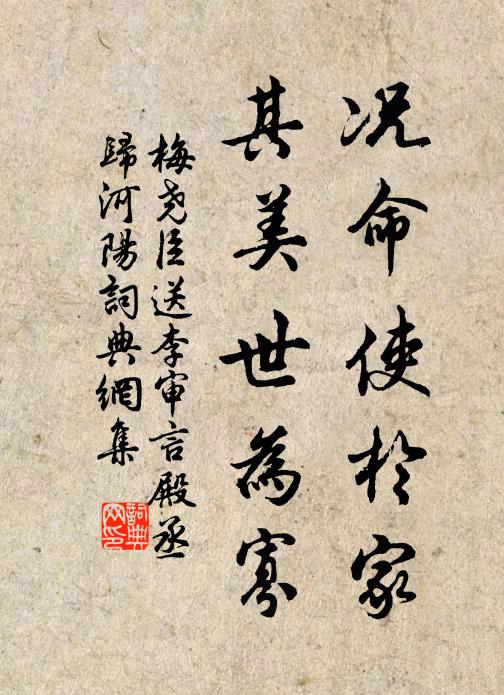 况命使於家
其美世為寡
梅堯臣送李审言殿丞
歸河陽詞典網集
詞典網印